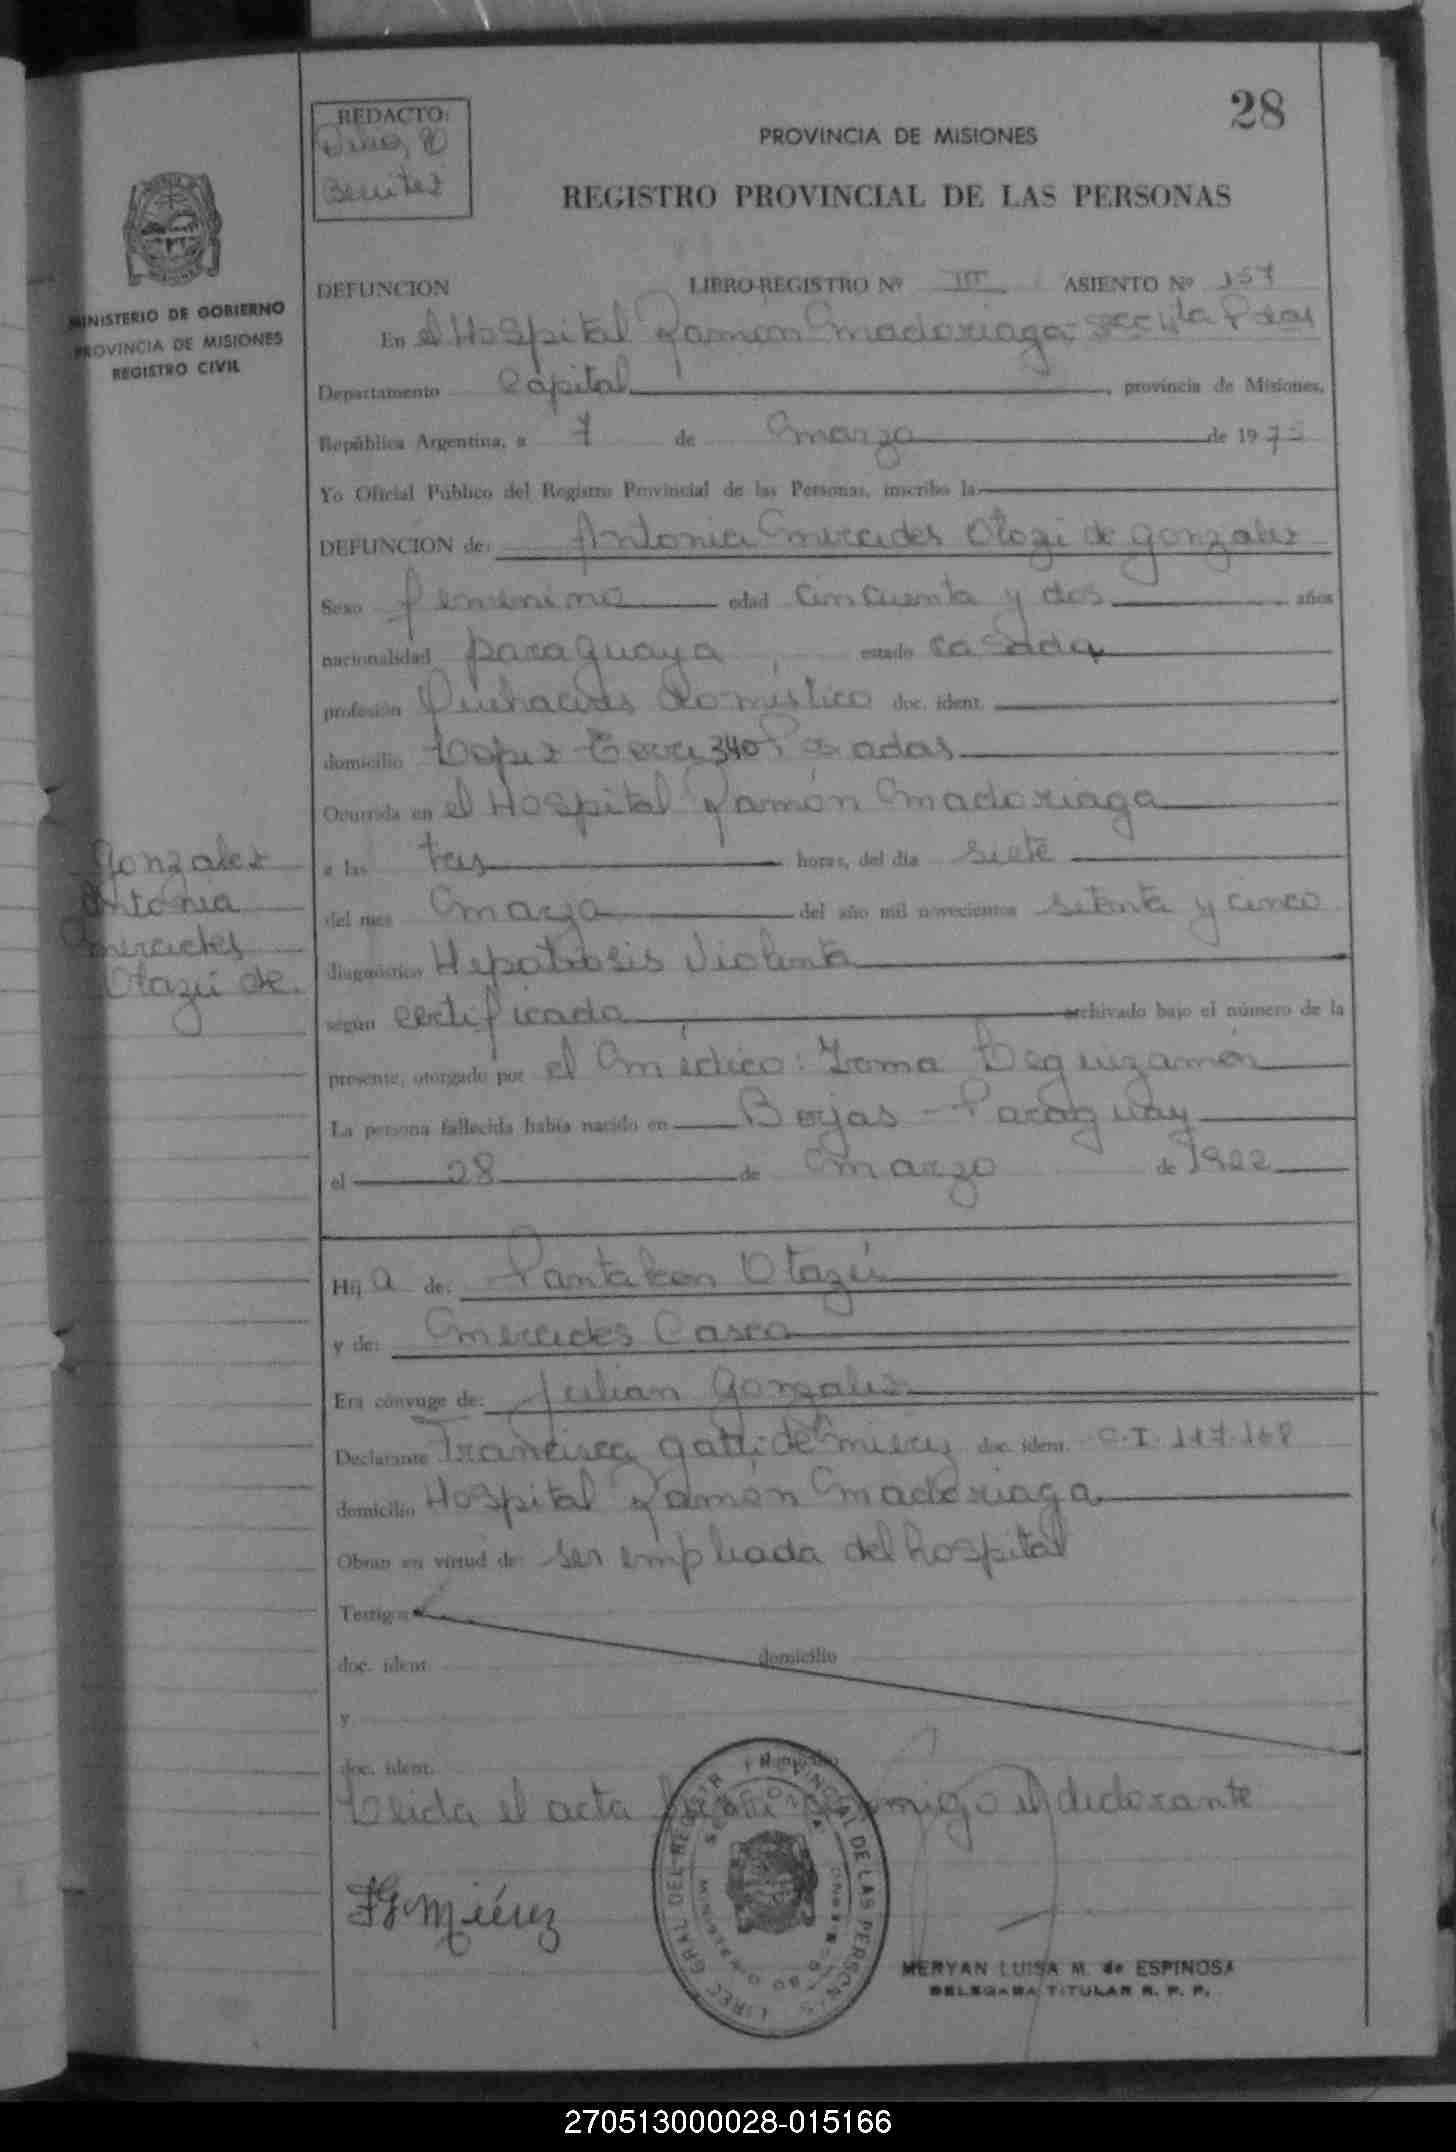 28
REDACTO:
Benitez
PROVINCIA DE MISIONES
REGISTRO PROVINCIAL DE LAS PERSONAS
MINISTERIO DE GOBIERNO
PROVINCIA DE MISIONES
REGISTRO CIVIL
DEFUNCION LIBRO-REGISTRO Nº III ASIENTO Nº 157
En el Hospital Ramón Madariaga secc 4ta Pdas
Departamento Capital, provincia de Misiones,
República Argentina, a 7 de Marzo de 1975
Yo Oficial Público del Registro Provincial de las Personas, inscribo la
DEFUNCION de: Antonia Mercedes Otazú de Gonzalez
Sexo femenino edad cincuenta y dos años
nacionalidad paraguaya estado casada
profesión Quehaceres Doméstico doc. ident.
domicilio Lopez Torres 340 Posadas
Ocurrida en el Hospital Ramón Madariaga
a las tres horas, del día siete
del mes Marzo del año mil novecientos setenta y cinco
diagnóstico Hepatosis Violenta
según certificado archivado bajo el número de la
presente, otorgado por el Médico: Leguizamón
La persona fallecida había nacido en Borjas - Paraguay
el 28 de Marzo de 1922
Gonzalez
Antonia
Mercedes
Otazú de
Hij a de: Pantaleon Otazú
y de: Mercedes Casco
Era cónyuge de: Julian Gonzalez
Declarante Francisca Gatti de doc. ident. C.I. 117.168
domicilio Hospital Ramón Madariaga
Obran en virtud de: ser empleada del hospital
Testigos
doc. ident. domicilio
y
doc. ident.
Leida el acta firma conmigo el declarante
DIREC. GRAL. DEL REGISTR. PROVINCIAL DE LAS PERSONAS
MERYAN LUISA M. de ESPINOSA
DELEGADA TITULAR R. P. P.
270513000028-015166